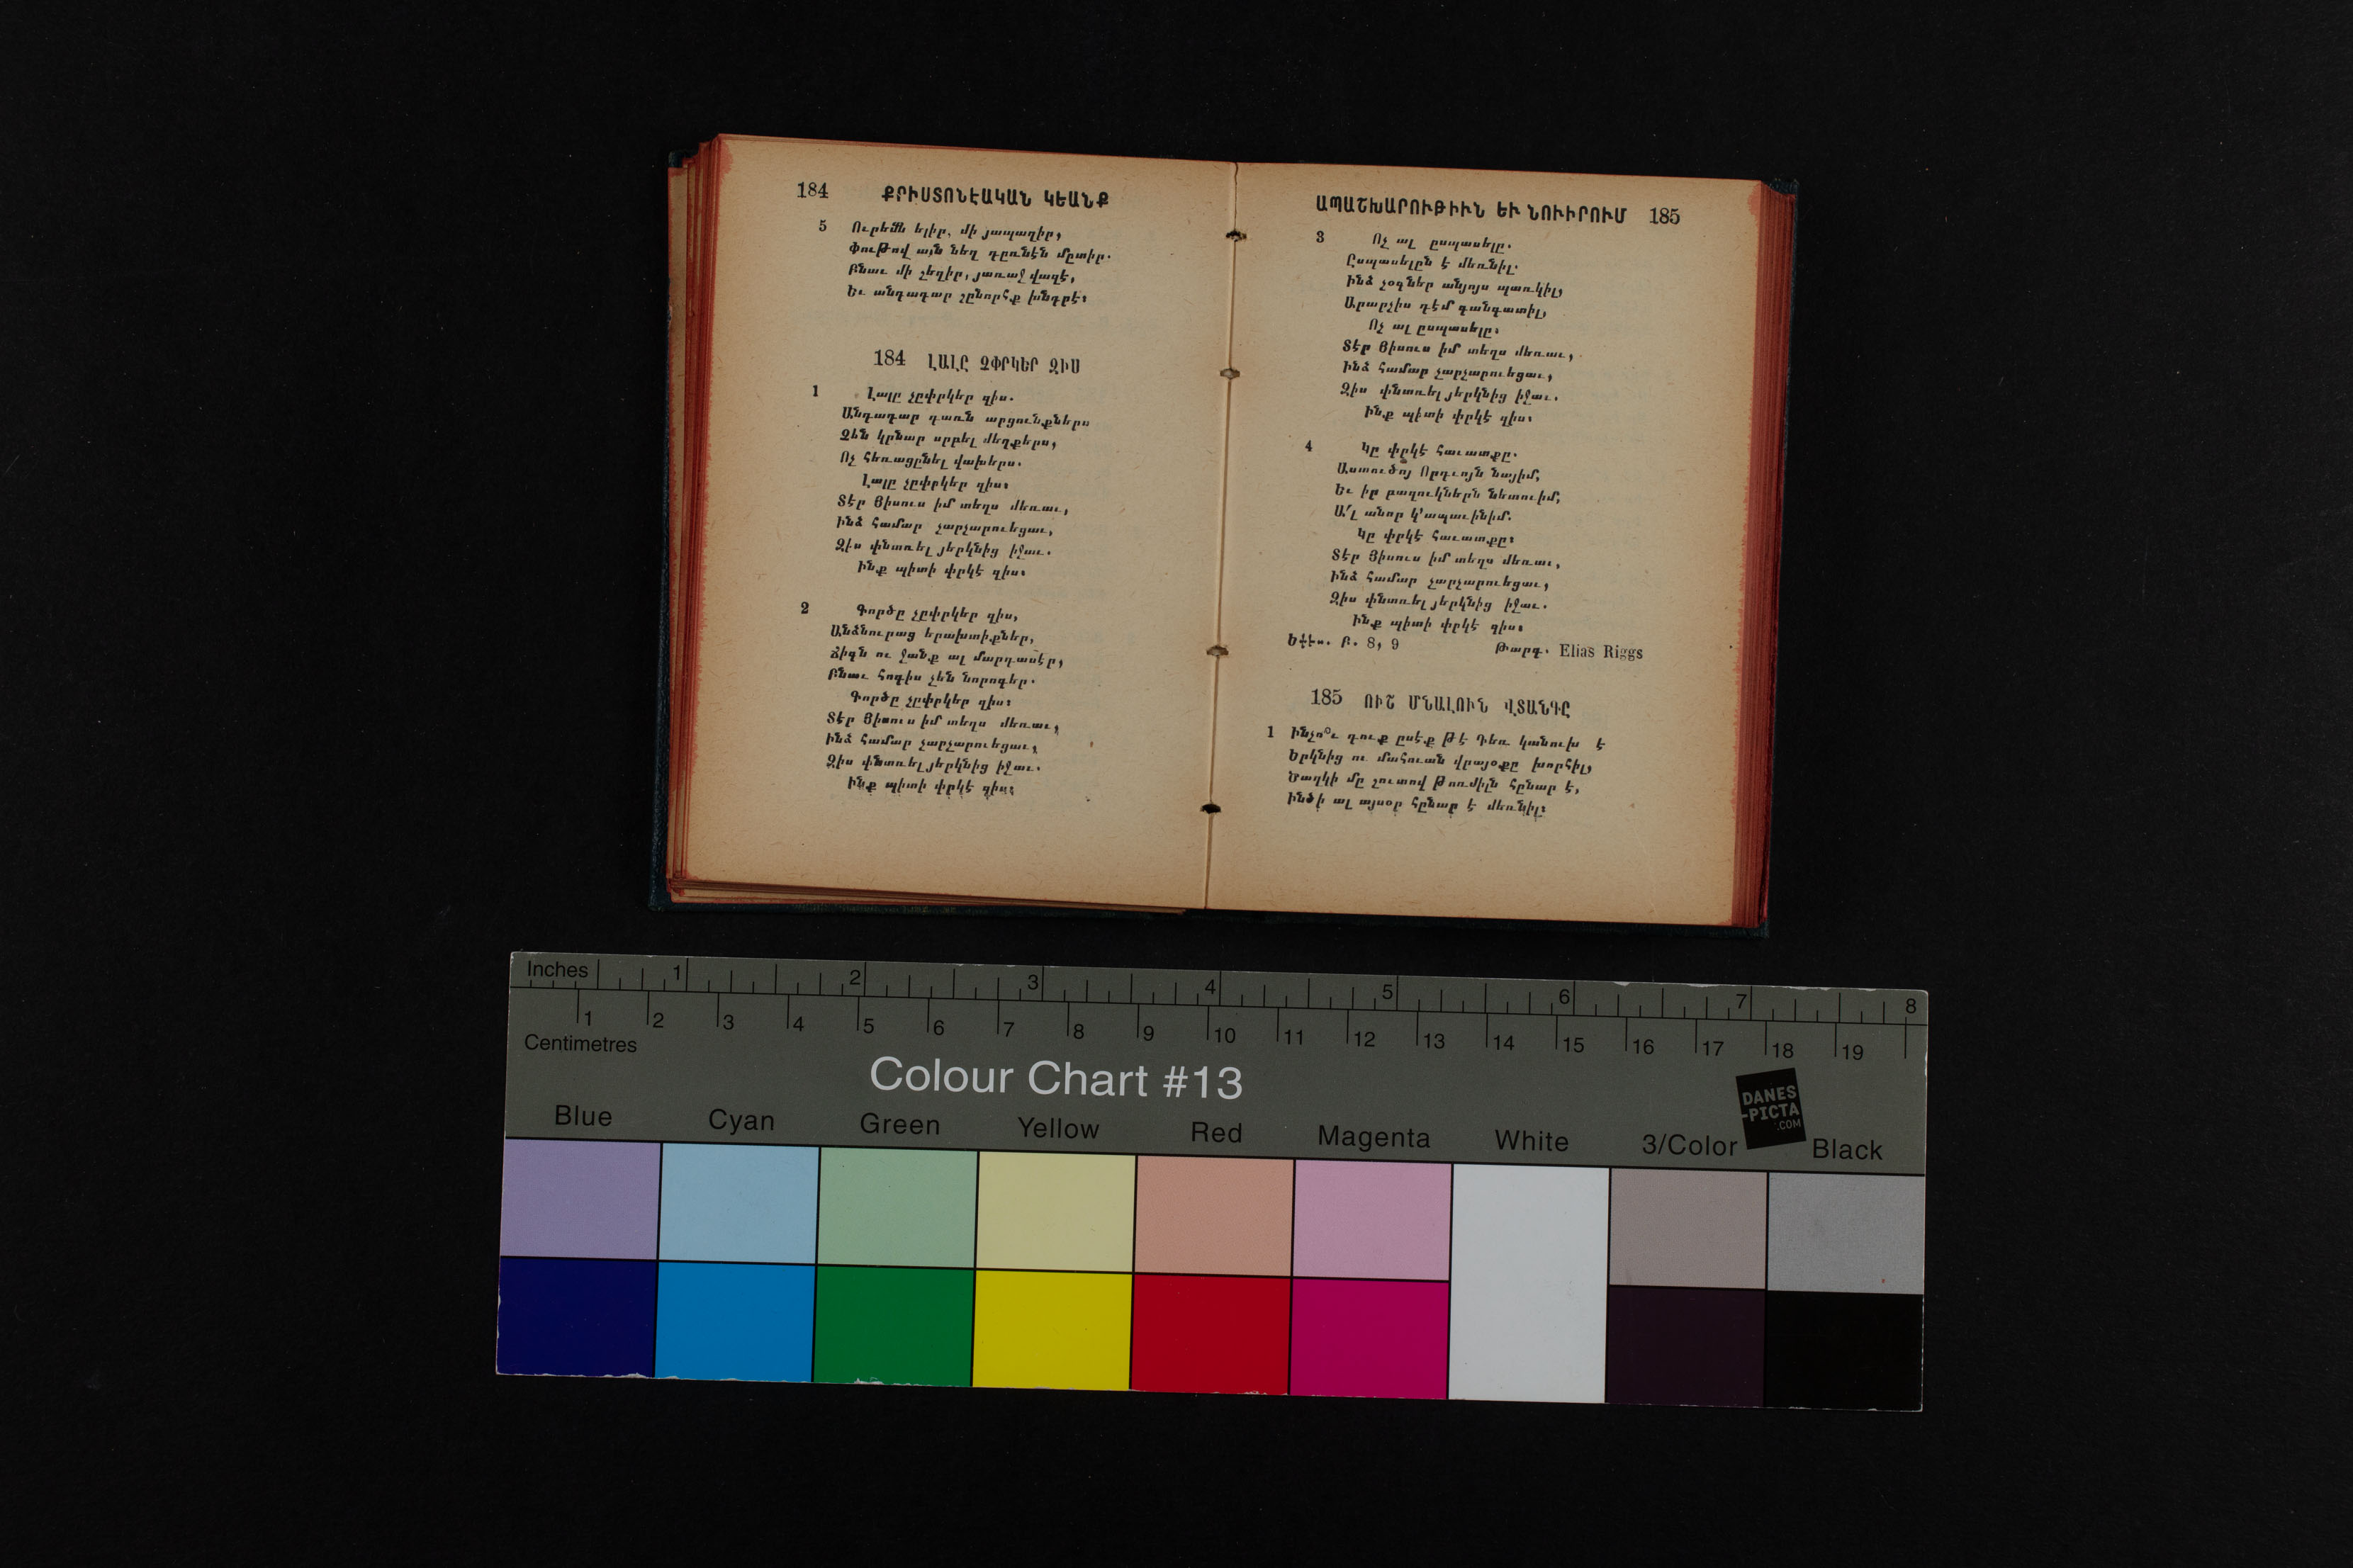 184 ՔՐԻՍՏՈՆԷԱԿԱՆ ԿԵԱՆՔ
5 Ուրեմն ելիր, մի յապաղիր,
Փութով այն նեղ դըռնէն մըտիր.
Բնաւ մի չեղիր, յառաջ վազէ,
Եւ անդադար շընորհք խնդրէ։
184 ԼԱԼԸ ՉՓՐԿԵՐ ԶԻՍ
1 Լալը չըփրկեր զիս.
Անդադար դառն արցունքներս
Չեն կրնար սրբել մեղքերս,
Ոչ հեռացընել վախերս.
Լալը չըփրկեր զիս։
Տէր Յիսուս իմ տեղս մեռաւ,
Ինձ համար չարչարուեցաւ,
Զիս փնտռել յերկնից իջաւ.
Ինք պիտի փրկէ զիս։
2 Գործը չըփրկեր զիս,
Անձնուրաց երախտիքներ,
Ճիգն ու ջանք ալ մարդասէր,
Բնաւ հոգիս չեն նորոգեր.
Գործը չըփրկեր զիս։
Տէր Յիսուս իմ տեղս մեռաւ,
Ինձ համար չարչարուեցաւ,
Զիս փնտռել յերկնից իջաւ.
Ինք պիտի փրկէ զիս։
ԱՊԱՇԽԱՐՈՒԹԻՒՆ ԵՒ ՆՈՒԻՐՈՒՄ 185
3 Ոչ ալ ըսպասելը.
Ըսպասելըն է մեռնիլ.
Ինձ չօգներ անյոյս պառկիլ,
Արարչիս դէմ գանգատիլ,
Ոչ ալ ըսպասելը։
Տէր Յիսուս իմ տեղս մեռաւ,
Ինձ համար չարչարուեցաւ,
Զիս փնտռել յերկնից իջաւ.
Ինք պիտի փրկէ զիս։
4 Կը փրկէ հաւատքը.
Աստուծոյ Որդւոյն նայիմ,
Եւ իր բազուկներն նետուիմ,
Ա՛լ անոր կ՚ապաւինիմ.
Կը փրկէ հաւատքը։
Տէր Յիսուս իմ տեղս մեռաւ,
Ինձ համար չարչարուեցաւ,
Զիս փնտռել յերկնից իջաւ.
Ինք պիտի փրկէ զիս։
Եփես. Բ. 8, 9 Թարգ. Elias Riggs
185 ՈՒՇ ՄՆԱԼՈՒՆ ՎՏԱՆԳԸ
1 Ինչո՞ւ դուք ըսէք թէ Դեռ կանուխ է
Երկնից ու մահուան վրայօքը խորհիլ,
Ծաղկի մը շուտով թոռմիլն հընար է,
Ինծի ալ այսօր հընար է մեռնիլ։
Inches 1 2 3 4 5 6 7 8
1 2 3 4 5 6 7 8 9 10 11 12 13 14 15 16 17 18 19
Centimetres
Colour Chart #13
DANES
-PICTA
.COM
Blue Cyan Green Yellow Red Magenta White 3/Color Black